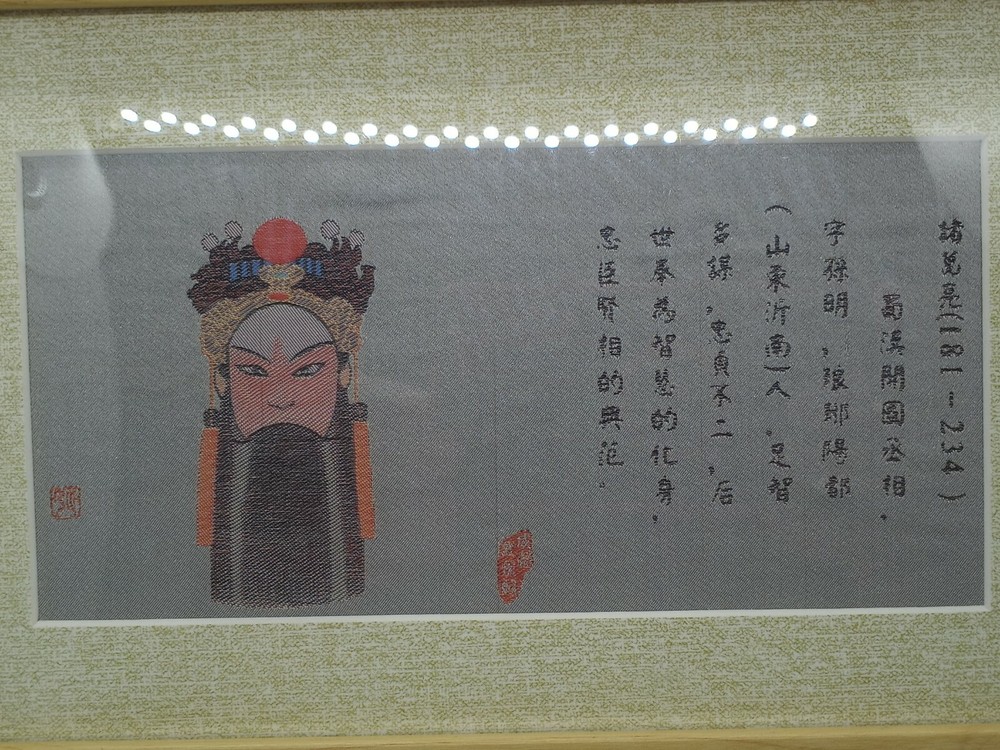 諸葛亮(181-234)
蜀漢開國丞相，
字孔明，琅邪陽都
(山東沂南)人。足智
多謀，忠貞不二，后
世奉為智慧的化身，
忠臣賢相的典范。